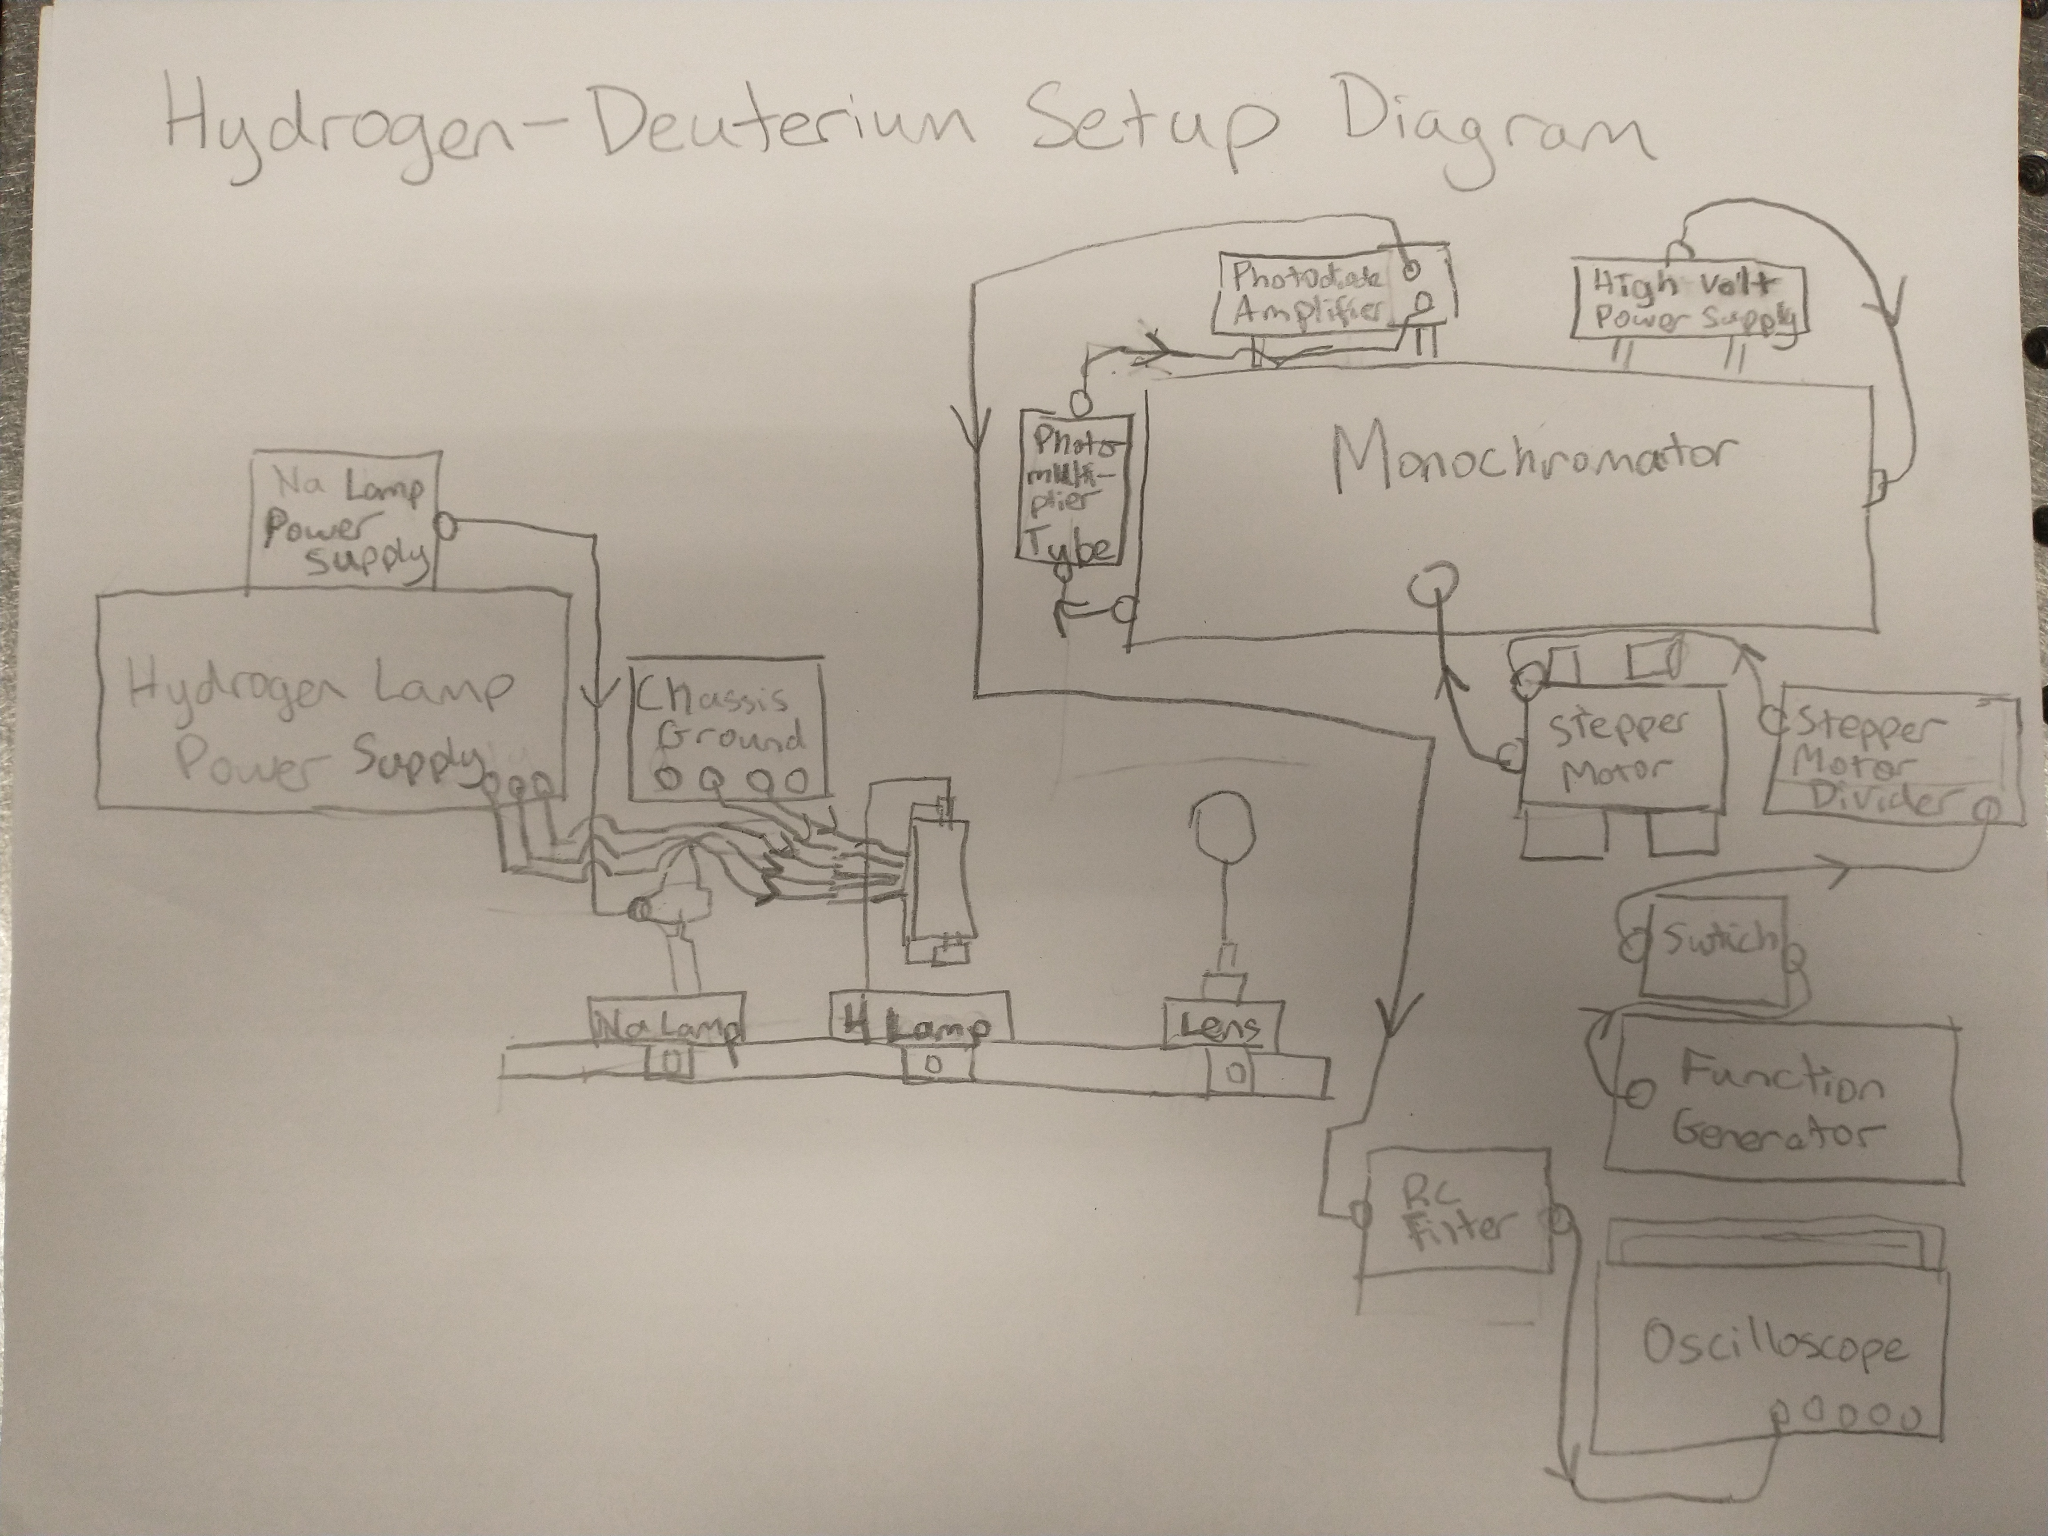 Hydrogen-Deuterium Setup Diagram
Photodiode
Amplifier
High Volt
Power Supply
Monochromator
Photo
multi-
plier
Tube
Na Lamp
Power
Supply
Hydrogen Lamp
Power Supply
Chassis
Ground
Stepper
Motor
Stepper
Motor
Divider
Switch
Na Lamp
H Lamp
Lens
Function
Generator
RC
Filter
Oscilloscope